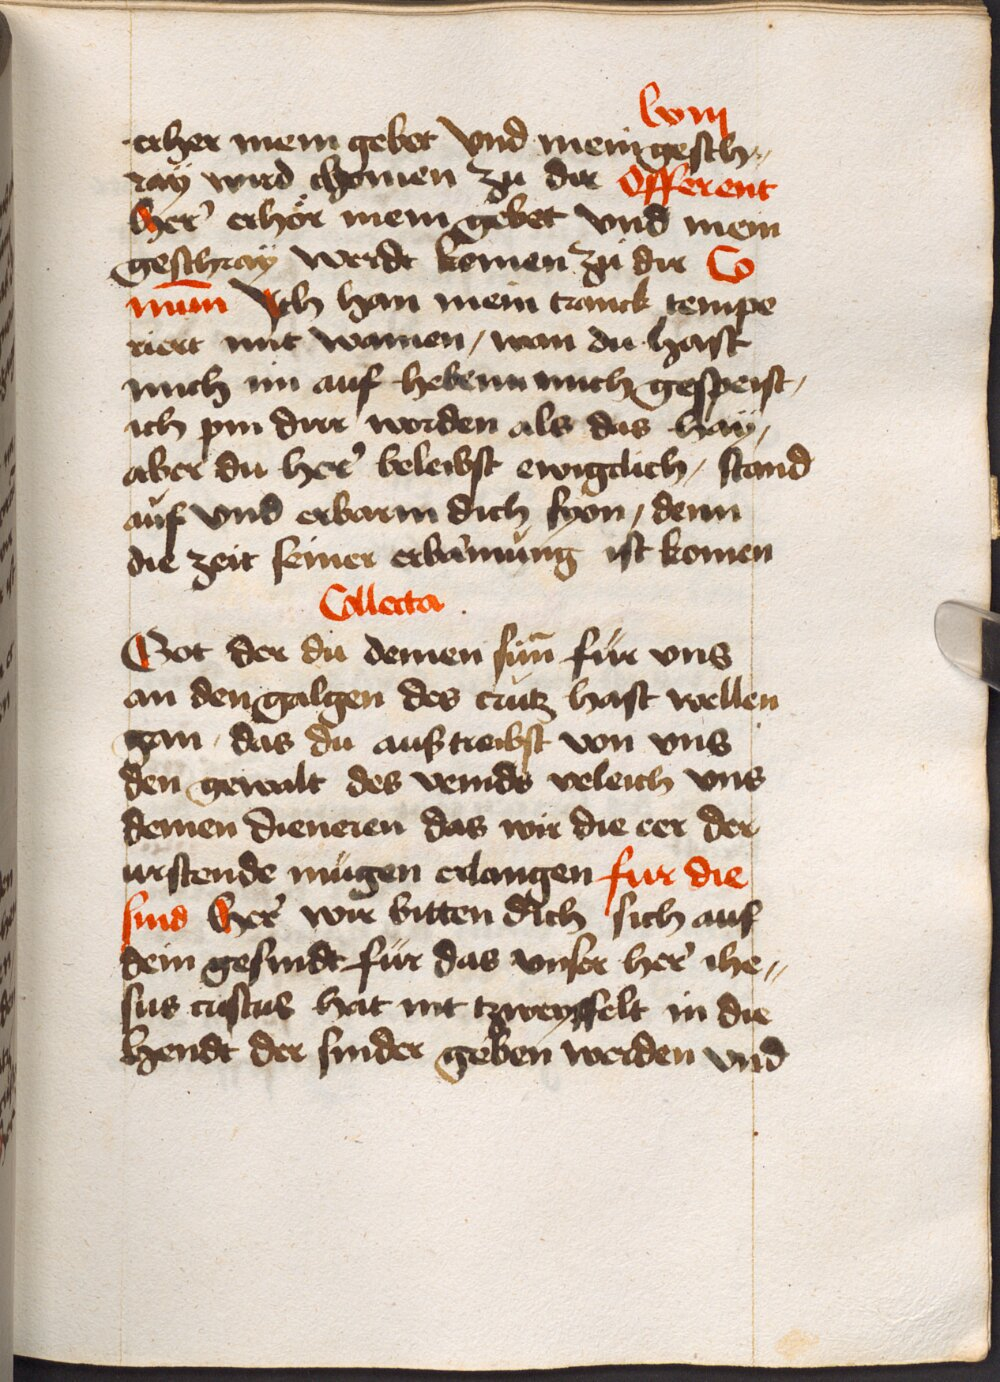 lviii
erher mein gebet vnd mein gesch„
ray wird chomen zu dir Offerent
Her᷑ erhör mein gebet vnd mein
geschray werde komen zu dir Co
mun̄ Ich han mein tranck tempe
riert mit wainen / wan du hast
mich im auf hebenn mich gespeist /
ich pin dirr worden als das haÿ /
aber du her᷑ beleibst ewigclich / stand
auf vnd erbarm dich syon / denn
die zeit seiner erbarmung ist komen
Collecta
Got der du deinen sun̄ für vns
an den galgen des crütz hast wellen
gan / das du austreibst von vns
den gewalt des veinds verleich vns
deinen dieneren das wir die eer der
urstende mügen erlangen fur die
sind Her᷑ wir bitten dich sich auf
dein gesindt für das vnser her᷑ ihe„
sus cristus hat nit tzweyffelt in die
hendt der sinder geben werden vnd